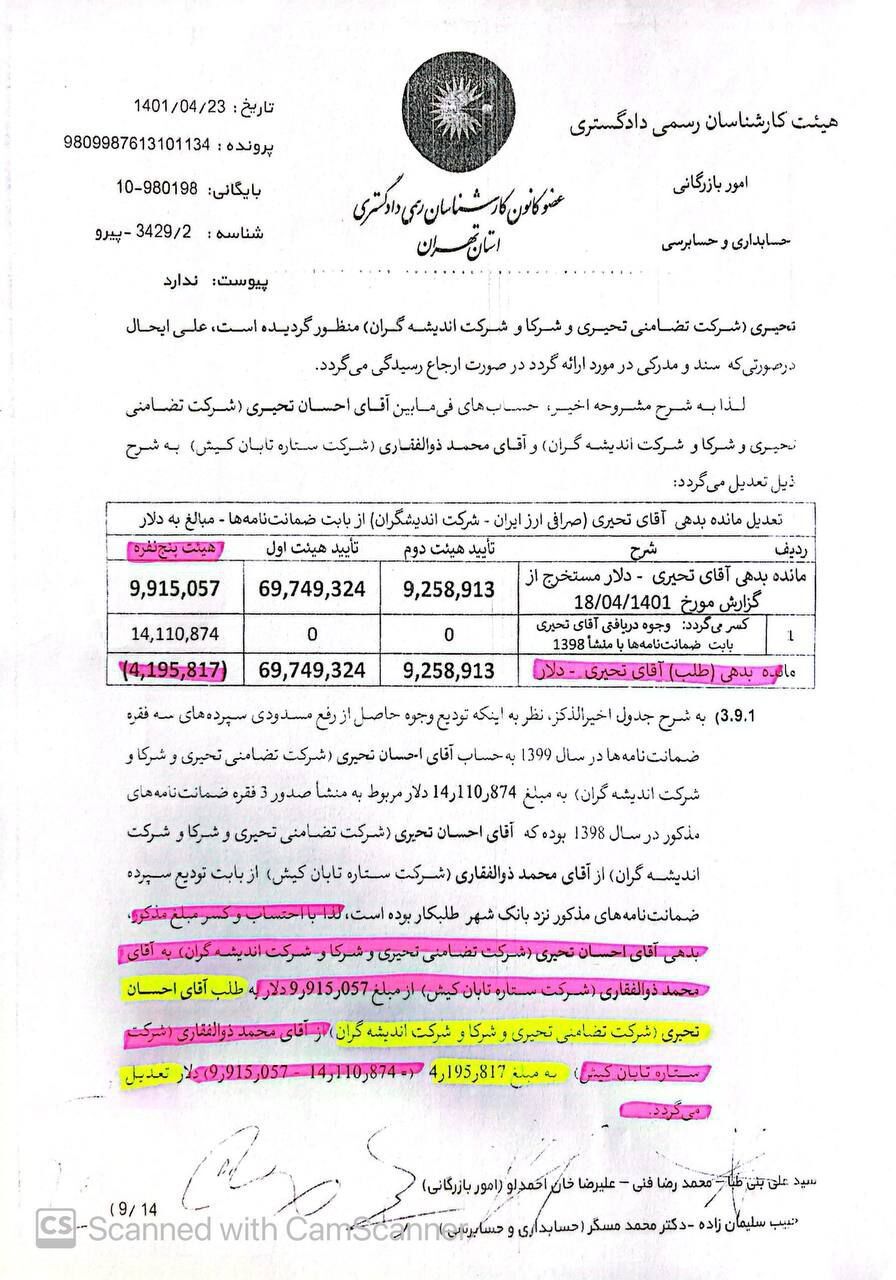 هیئت کارشناسان رسمی دادگستری
امور بازرگانی
حسابداری و حسابرسی
عضو کانون کارشناسان رسمی دادگستری
استان تهران
تاریخ: 1401/04/23
پرونده: 9809987613101134
بایگانی: 980198-10
شناسه: 3429/2 -پیرو
پیوست: ندارد
تحیری (شرکت تضامنی تحیری و شرکا و شرکت اندیشه گران) منظور گردیده است، علی ایحال
درصورتی‌که سند و مدرکی در مورد ارائه گردد در صورت ارجاع رسیدگی می‌گردد.
لذا به شرح مشروحه اخیر، حساب‌های فی‌مابین آقای احسان تحیری (شرکت تضامنی
تحیری و شرکا و شرکت اندیشه گران) و آقای محمد ذوالفقاری (شرکت ستاره تابان کیش) به شرح
ذیل تعدیل می‌گردد:
تعدیل مانده بدهی آقای تحیری (صرافی ارز ایران - شرکت اندیشگران) از بابت ضمانت‌نامه‌ها - مبالغ به دلار
ردیف شرح تأیید هیئت دوم تأیید هیئت اول هیئت پنج‌نفره
مانده بدهی آقای تحیری - دلار مستخرج از
گزارش مورخ 18/04/1401 9,258,913 69,749,324 9,915,057
1 کسر می‌گردد: وجوه دریافتی آقای تحیری
بابت ضمانت‌نامه‌ها با منشأ 1398 0 0 14,110,874
مانده بدهی (طلب) آقای تحیری - دلار 9,258,913 69,749,324 (4,195,817)
3.9.1) به شرح جدول اخیرالذکر، نظر به اینکه تودیع وجوه حاصل از رفع مسدودی سپرده‌های سه فقره
ضمانت‌نامه‌ها در سال 1399 به حساب آقای احسان تحیری (شرکت تضامنی تحیری و شرکا و
شرکت اندیشه گران) به مبلغ 14ر110ر874 دلار مربوط به منشأ صدور 3 فقره ضمانت‌نامه‌های
مذکور در سال 1398 بوده که آقای احسان تحیری (شرکت تضامنی تحیری و شرکا و شرکت
اندیشه گران) از آقای محمد ذوالفقاری (شرکت ستاره تابان کیش) از بابت تودیع سپرده
ضمانت‌نامه‌های مذکور نزد بانک شهر طلبکار بوده است، لذا با احتساب و کسر مبلغ مذکور،
بدهی آقای احسان تحیری (شرکت تضامنی تحیری و شرکا و شرکت اندیشه گران) به آقای
محمد ذوالفقاری (شرکت ستاره تابان کیش) از مبلغ 9ر915ر057 دلار به طلب آقای احسان
تحیری (شرکت تضامنی تحیری و شرکا و شرکت اندیشه گران) از آقای محمد ذوالفقاری (شرکت
ستاره تابان کیش) به مبلغ 4ر195ر817 (= 14ر110ر874 - 9ر915ر057) دلار تعدیل
می‌گردد.
سید علی بنی طبا – محمد رضا فنی – علیرضا خان احمدلو (امور بازرگانی)
حبیب سلیمان زاده - دکتر محمد مسگر (حسابداری و حسابرسی)
(9/ 14
CS Scanned with CamScanner